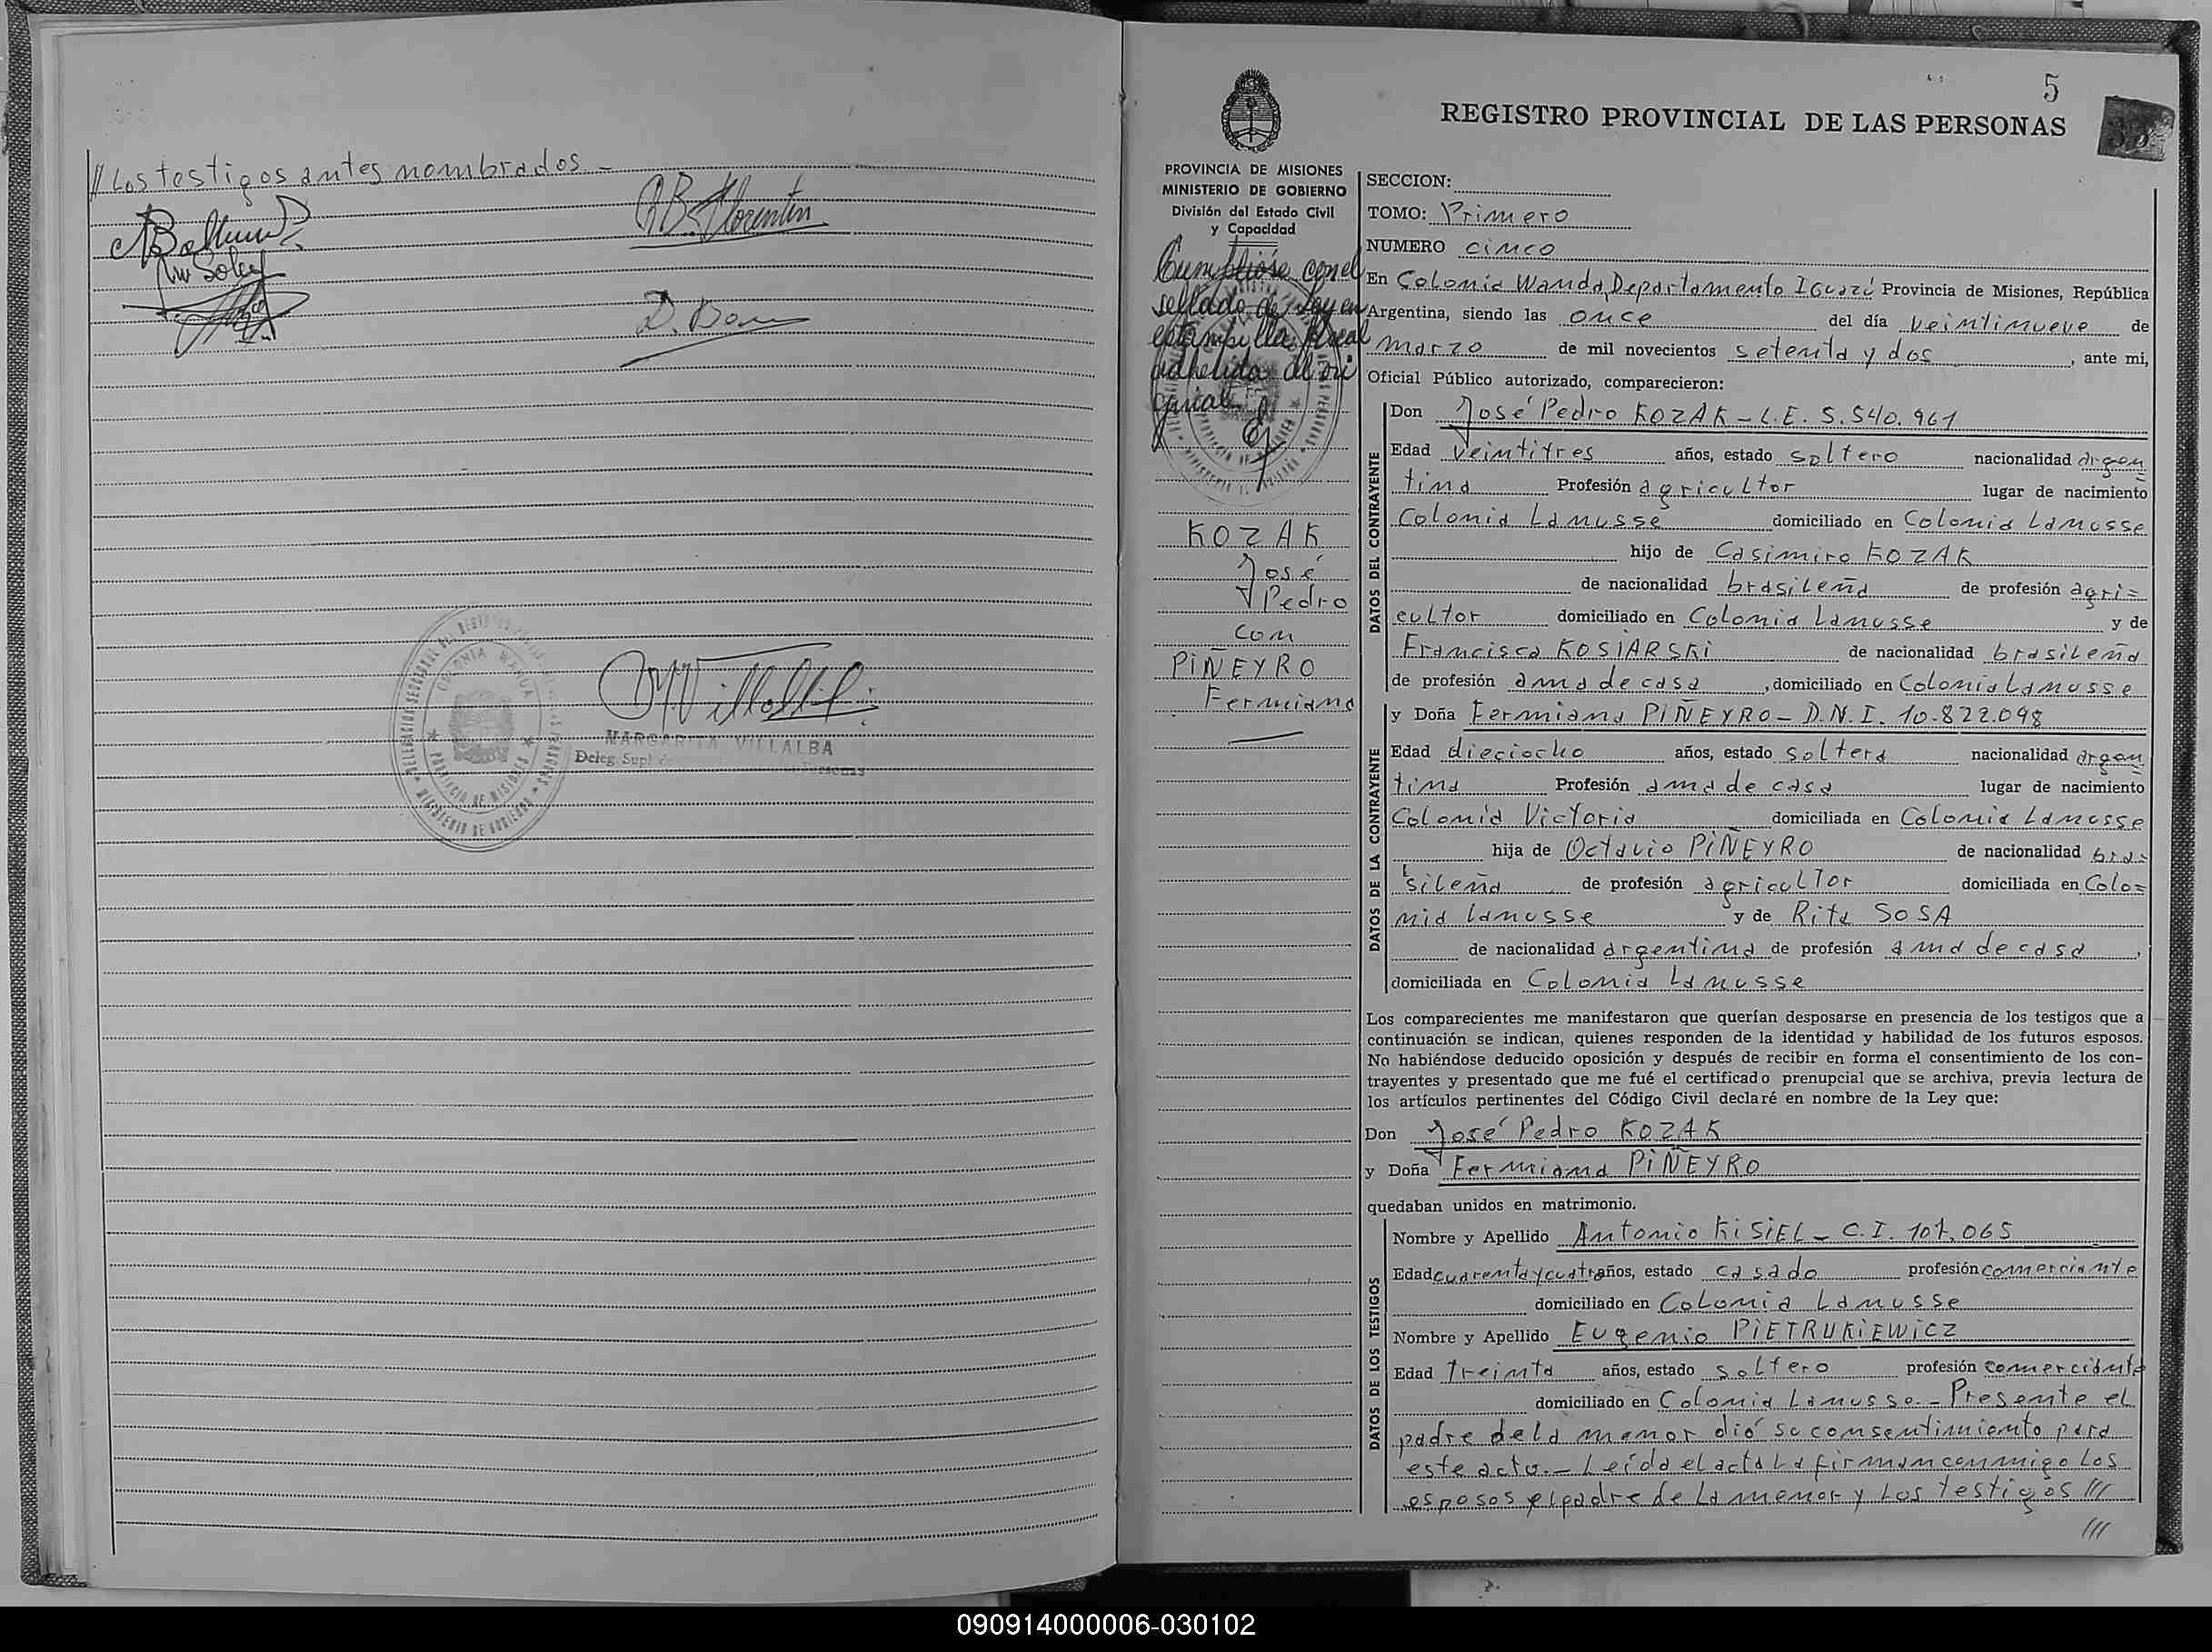 // Los testigos antes nombrados –
MARGARITA VILLALBA
Deleg. Supl.
5
REGISTRO PROVINCIAL DE LAS PERSONAS
PROVINCIA DE MISIONES
MINISTERIO DE GOBIERNO
División del Estado Civil
y Capacidad
Cumplióse con el
sellado de Ley en
estampilla fiscal
adherida al ori
ginal
KOZAK
José
Pedro
con
PIÑEYRO
Fermiana
SECCION:
TOMO: Primero
NUMERO cinco
En Colonia Wanda, Departamento Iguazú Provincia de Misiones, República
Argentina, siendo las once del día veintinueve de
marzo de mil novecientos setenta y dos, ante mi,
Oficial Público autorizado, comparecieron:
DATOS DEL CONTRAYENTE
Don José Pedro KOZAK – L.E. 5.540.961
Edad veintitres años, estado soltero nacionalidad argen
tina Profesión agricultor lugar de nacimiento
Colonia Lanusse domiciliado en Colonia Lanusse
hijo de Casimiro KOZAK
de nacionalidad brasileña de profesión agri=
cultor domiciliado en Colonia Lanusse y de
Francisca KOSIARSKI de nacionalidad brasileña
de profesión ama de casa, domiciliado en Colonia Lanusse
DATOS DE LA CONTRAYENTE
y Doña Fermiana PIÑEYRO – D.N.I. 10.822.098
Edad dieciocho años, estado soltera nacionalidad argen
tina Profesión ama de casa lugar de nacimiento
Colonia Victoria domiciliada en Colonia Lanusse
hija de Octavio PIÑEYRO de nacionalidad bra=
sileña de profesión agricultor domiciliada en Colo=
nia Lanusse y de Rita SOSA
de nacionalidad argentina de profesión ama de casa,
domiciliada en Colonia Lanusse
Los comparecientes me manifestaron que querían desposarse en presencia de los testigos que a
continuación se indican, quienes responden de la identidad y habilidad de los futuros esposos.
No habiéndose deducido oposición y después de recibir en forma el consentimiento de los con-
trayentes y presentado que me fué el certificado prenupcial que se archiva, previa lectura de
los artículos pertinentes del Código Civil declaré en nombre de la Ley que:
Don José Pedro KOZAK
y Doña Fermiana PIÑEYRO
quedaban unidos en matrimonio.
DATOS DE LOS TESTIGOS
Nombre y Apellido Antonio KISIEL – C.I. 107.065
Edad cuarenta y cuatro años, estado casado profesión comerciante
domiciliado en Colonia Lanusse
Nombre y Apellido Eugenio PIETRUKIEWICZ
Edad treinta años, estado soltero profesión comerciante
domiciliado en Colonia Lanusse. – Presente el
padre de la menor dió su consentimiento para
este acto. – Leída el acta la firman conmigo los
esposos el padre de la menor y los testigos ///
///
090914000006-030102